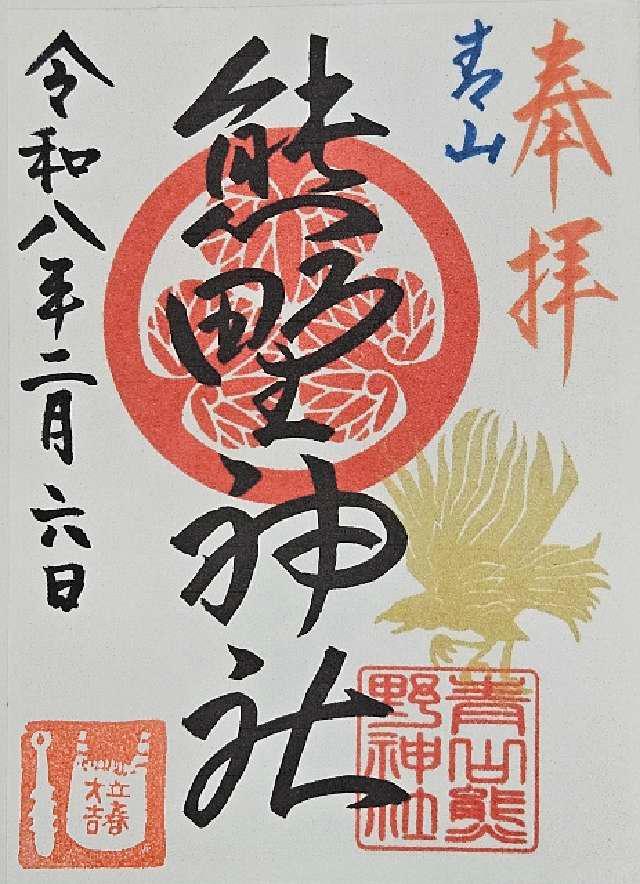 奉拝
青山
熊野神社
令和八年二月六日
青山熊
野神社
立春
大吉